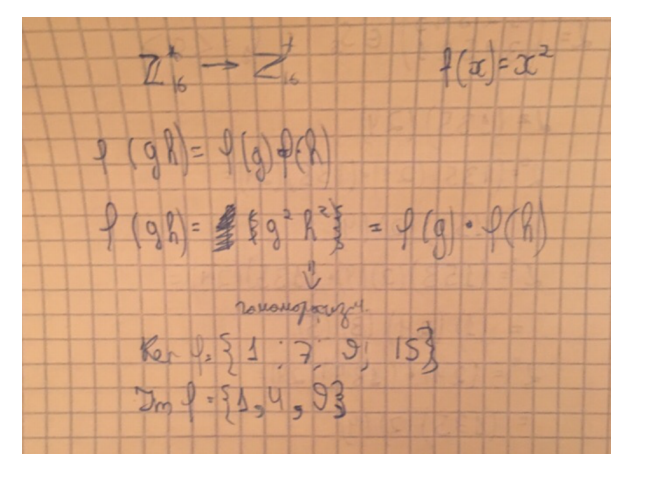 Z*₁₆ → Z*₁₆ f(x)=x²
f(gh)=f(g)f(h)
f(gh)= {g²h²} = f(g)·f(h)
⇓
гомоморфизм
Ker f={1; 7; 9; 15}
Im f={1,4,9}